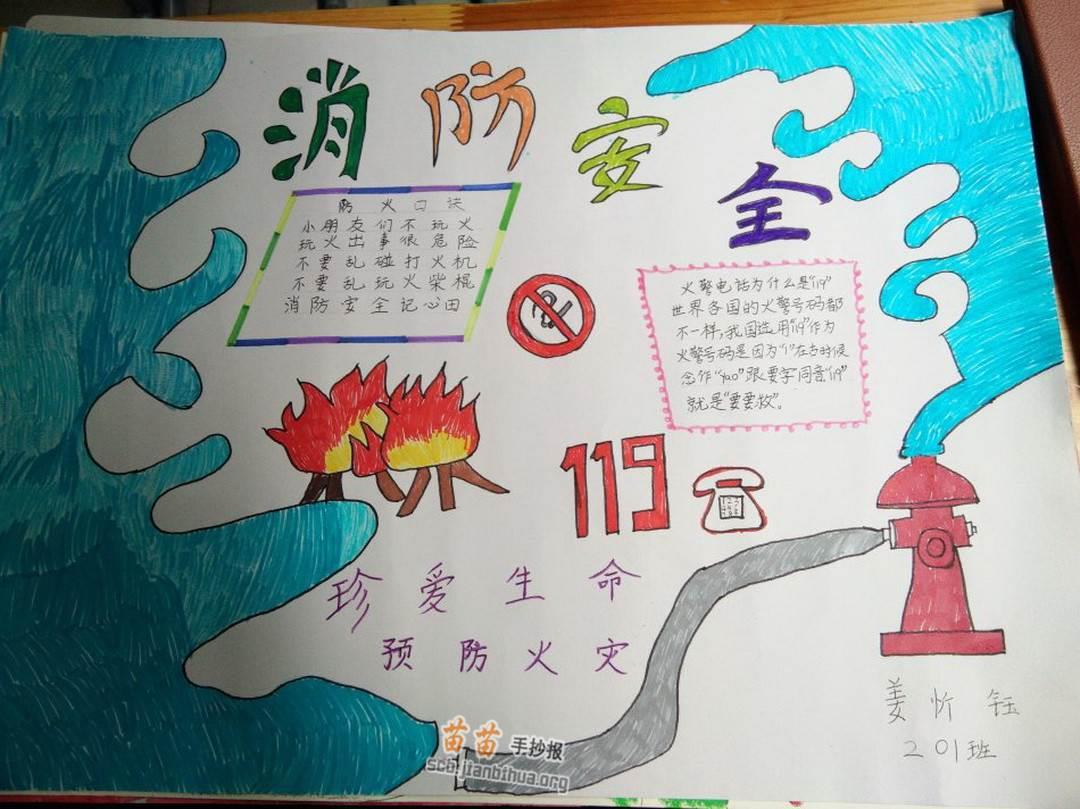 消防安全
防火口诀
小朋友们不玩火
玩火出事很危险
不要乱碰打火机
不要乱玩火柴棍
消防安全记心田
火警电话为什么是"119"
世界各国的火警号码都
不一样,我国选用"119"作为
火警号码是因为"1"在古时候
念作"yao"跟要字同音"119"
就是"要要救"。
119
珍爱生命
预防火灾
姜忻钰
201班
苗苗手抄报
scb.jianbihua.org